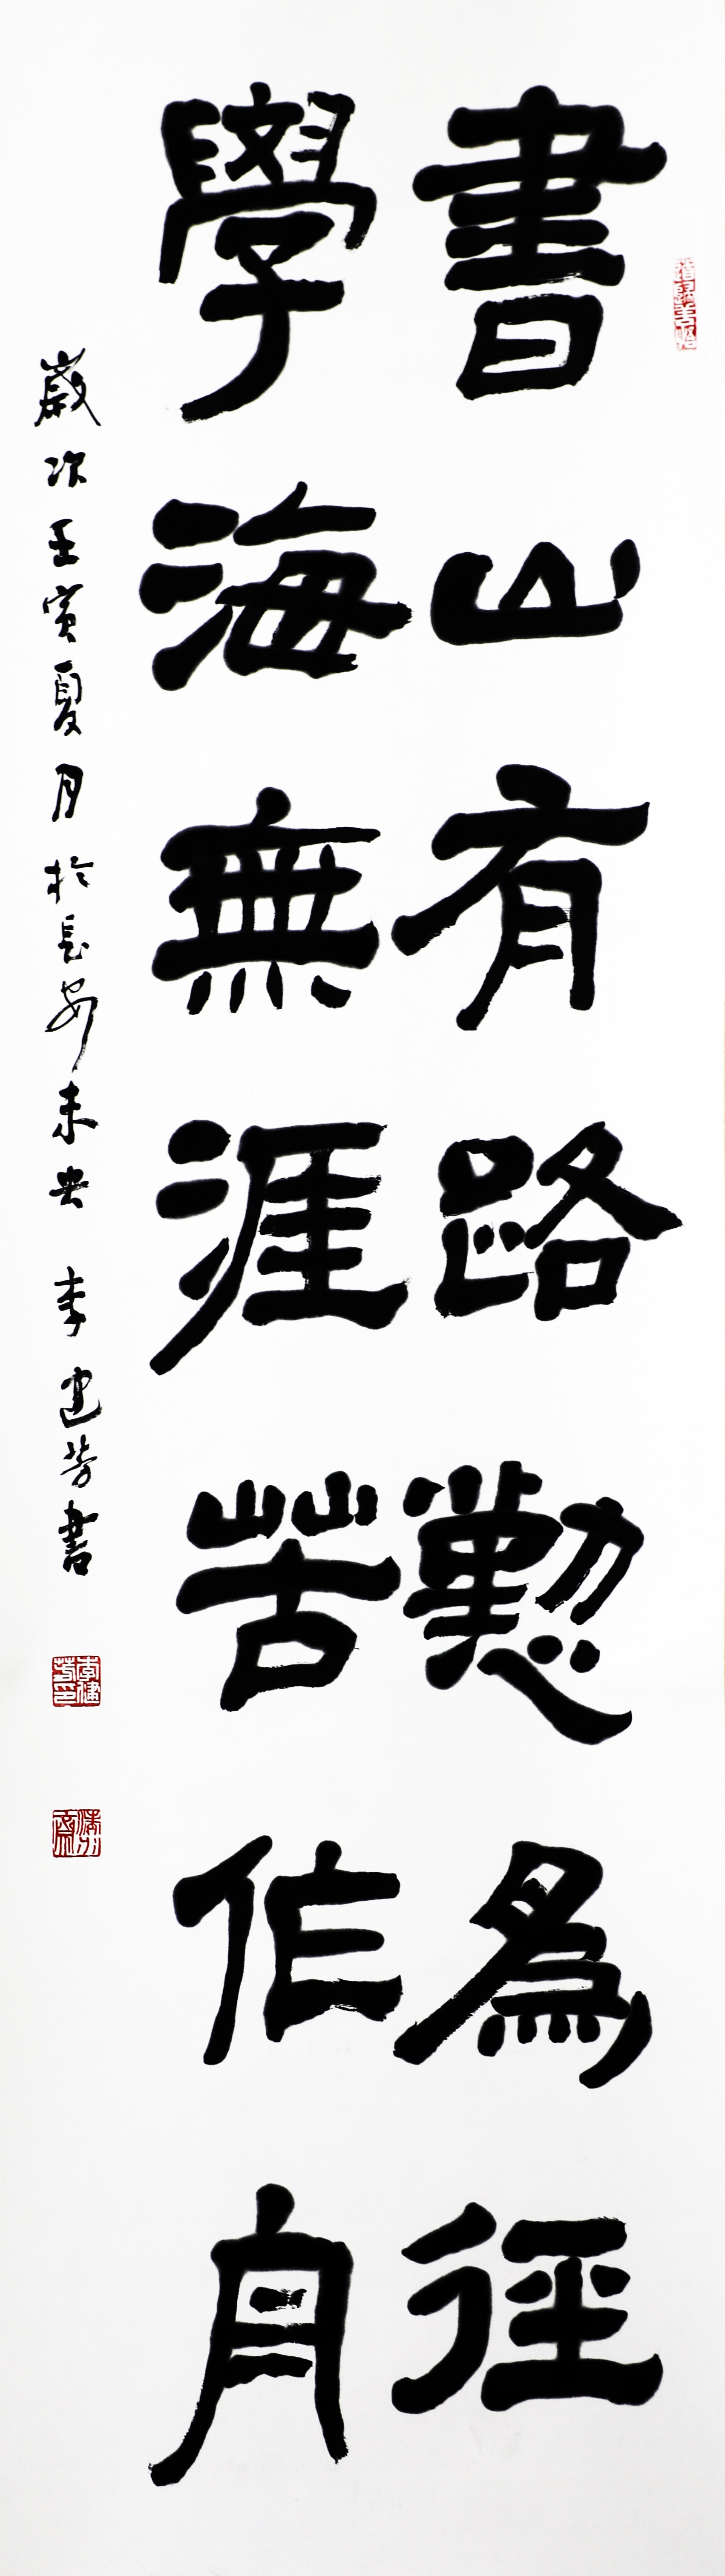 書山有路懃為徑
學海無涯苦作舟
歲次壬寅夏月於長安未央 李建芳書
李建芳印